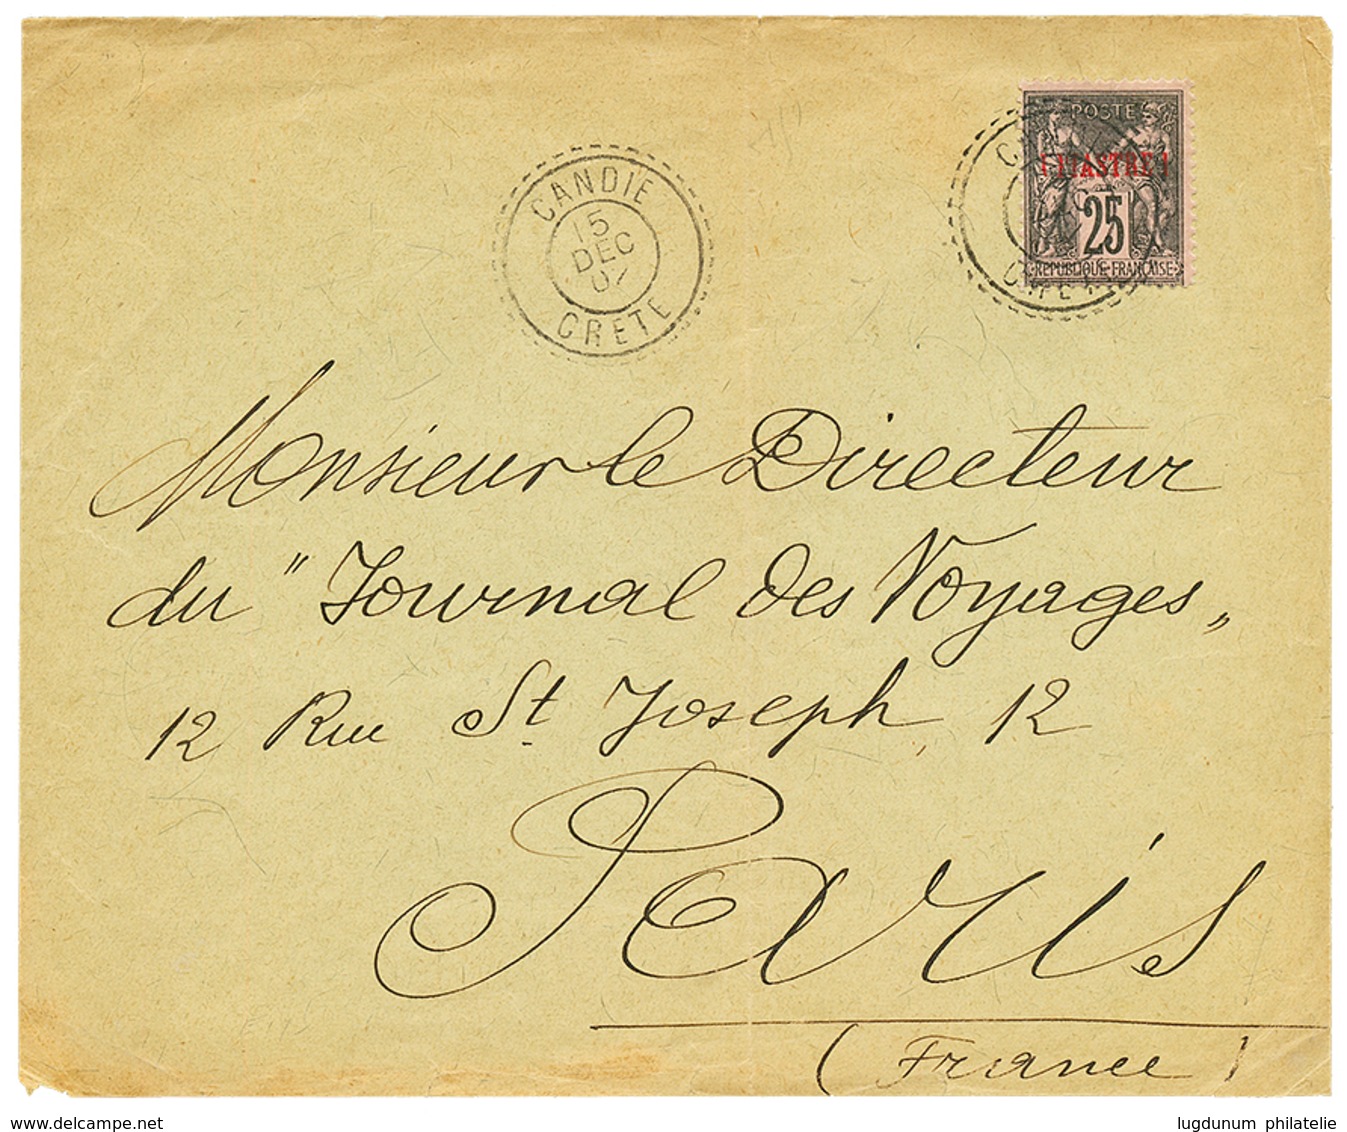 POSTE
1 PIASTRE 1
25
REPUBLIQUE FRANCAISE
CANDIE
15
DEC
CRETE
Monsieur le Directeur
du "Journal des Voyages„
12 Rue St Joseph 12
Paris
(France)
www.delcampe.net
lugdunum philatelie